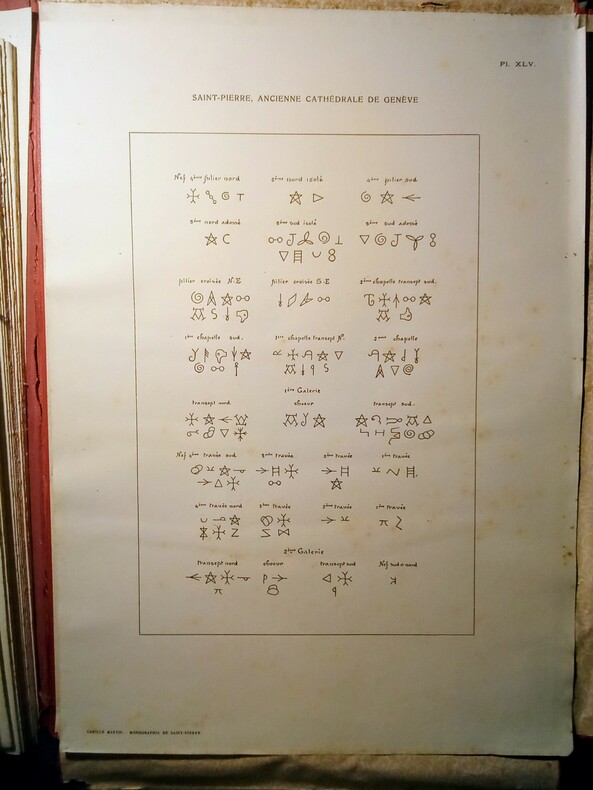 Pl. XLV.
SAINT-PIERRE, ANCIENNE CATHÉDRALE DE GENÈVE
Nef 4ème pilier nord 3ème nord isolé 4ème pilier sud
3ème nord adossé 3ème sud isolé 3ème sud adossé
pilier croisée N.E pilier croisée S.E 2ème chapelle transept sud.
1ère chapelle sud. 1ère chapelle transept N. 2ème chapelle
1ère Galerie
transept nord choeur transept sud.
Nef 4ème travée sud 3ème travée 2ème travée 1ère travée
4ème travée nord 3ème travée 2ème travée 1ère travée
2ème Galerie
transept nord choeur transept sud Nef sud
CAMILLE MARTIN. MONOGRAPHIE DE SAINT-PIERRE